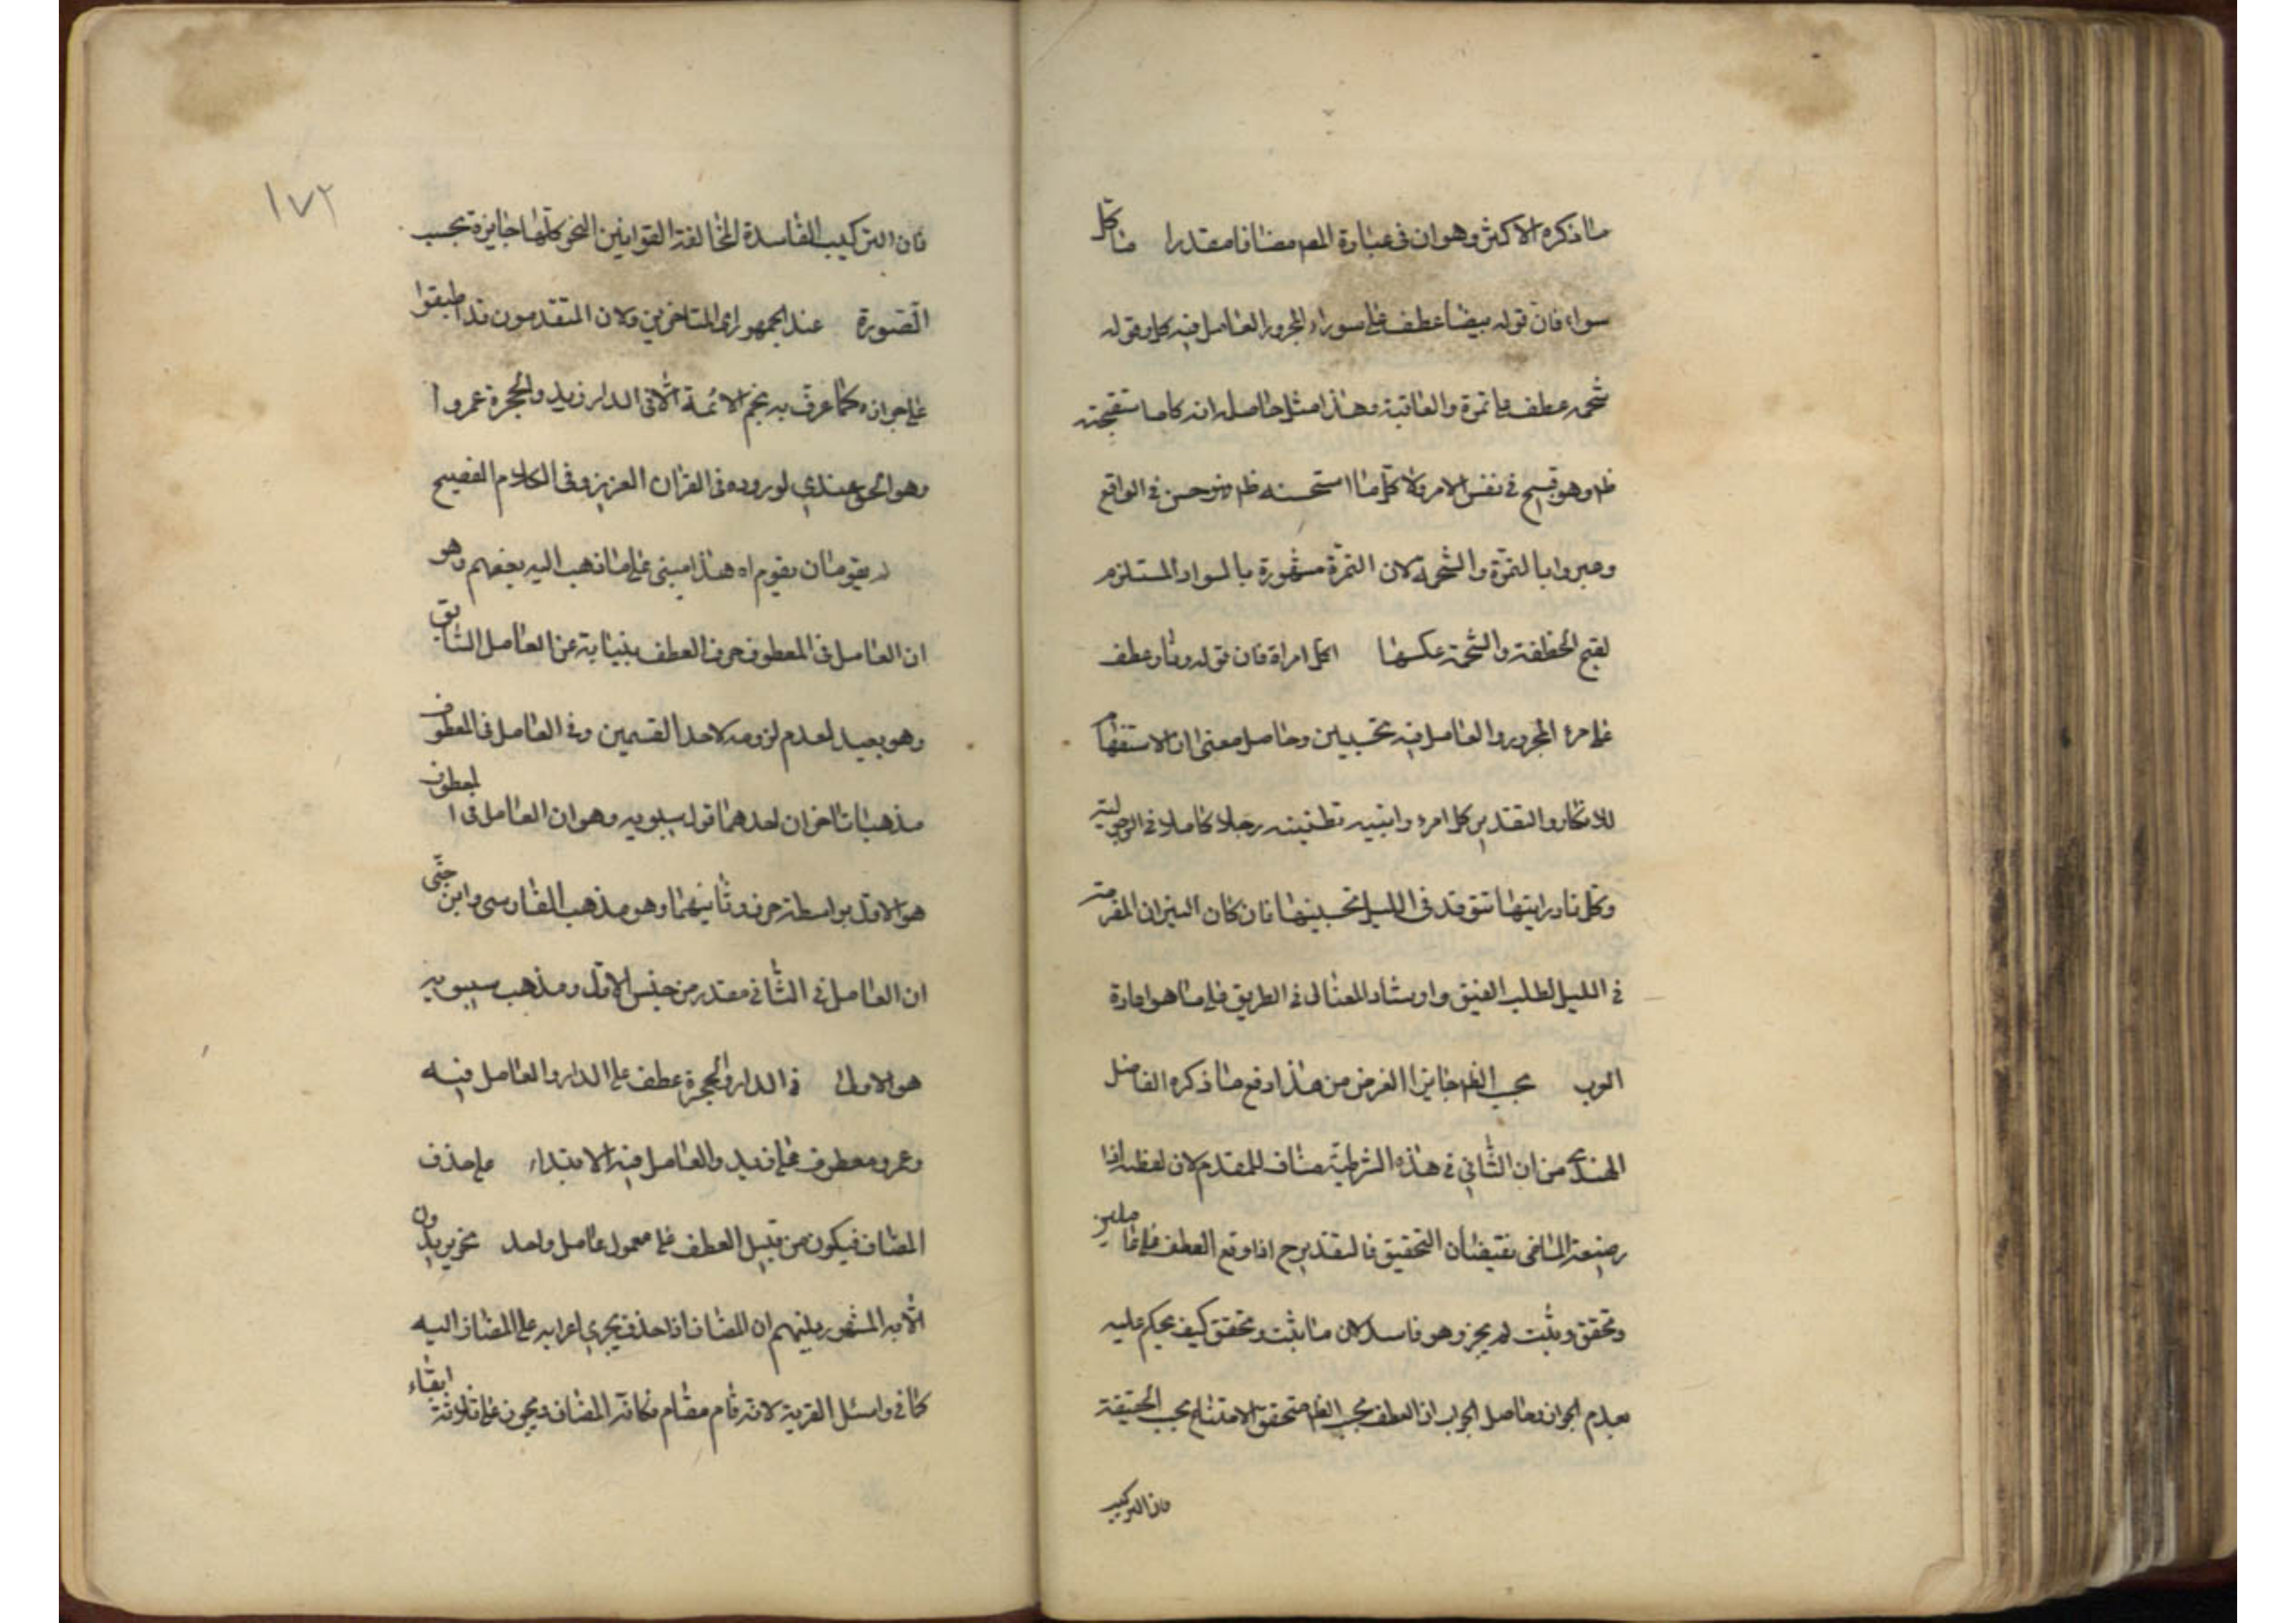 ما ذكره الاكثر وهو ان فى عبارة المصـ مضافا مقدرا ما كل
سواء فان قوله بيضا عطف على سوداء المجرور العامل فيه كل وقوله
شحمة عطف على تمرة والعا وهذا مثل حاصله انه كلما تستقبحه
ظـ وهو قبيح فى نفس الامر ولا كل ما استحسنه ظـ هو حسن فى الواقع
وعبروا بالتمرة والشحمة لان التمرة مشهورة بالسواد المستلزم
لقبح والشحمة عكسها اكل امراة فان قوله ونار عطف
على امرء المجرور والعامل فيه تحسبين وحاصل معنى ان الاستفهام
للانكار والتقدير كل امرء رجلا كاملا فى الرجولية
وكل نار رايتها تتوقد فى الليل تحسبينها نار كان النيران
فى الليل لطلب الضيق وارشاد الضال فى الطريق على ما هو عادة
العرب بحسب الظـ جايزا الغرض من هذا دفع ما ذكره الفاضل
الهندى من ان الثانى فى هذه الشرطية مناف للمقدم لان لفظة اذا
وصيغة الماضى يقتضيان التحقيق فالتقدير ح اذا وقع العطف على عاملين
وتحقق وثبت لم يجز وهو فاسد لان ما يثبت وتحقق كيف يحكم عليه
بعدم الجواز وحاصل الجواب ان العطف بحسب الظـ متحقق والامتناع بحسب الحقيقة
فان التركيب
١٧٢
فان التركيب الفاسدة المخالفة القوانين النحو كلها جايزة بحسب
الصورة عند الجمهور اى المتاخرين ولان المتقدمون قد اطبقوا
على جوازه كما عرف به نجم الائمة الا فى الدار زيد والحجرة عمروا
وهو الحق عندى لوروده فى القران العزيز وفى الكلام الفصيح
لم يقو ان يقوم اه هذا مبنى على ما ذهب اليه بعضهم وهو
ان العامل فى المعطوف حرف العطف بنيابة عن العامل السابق
وهو بعيد لعدم لزومه لاحد القسمين وفى العامل فى المعطوف
مذهبان اخران احدهما قول سيبويه وهو ان العامل فى المعطوف
هو الاول بواسطة حرف وثانيهما وهو مذهب الفارسى وابن جنى
ان العامل فى الثانى مقدر من جنس الاول ومذهب سيبويه
هو الاولى فى الدار والحجرة عطف على الدار والعامل فيه
وعمرو معطوف على زيد والعامل فيه الابتداء على حذف
المضاف فيكون من قبيل العطف على معمول عامل واحد نحو يريدون
الاية المشهور بينهم ان المضاف اذا حذف يجرى اعرابه على المضاف اليه
كما فى واسئل القرية لانه قام مقام مكانة المضاف ويجوز على قلة ابقاء